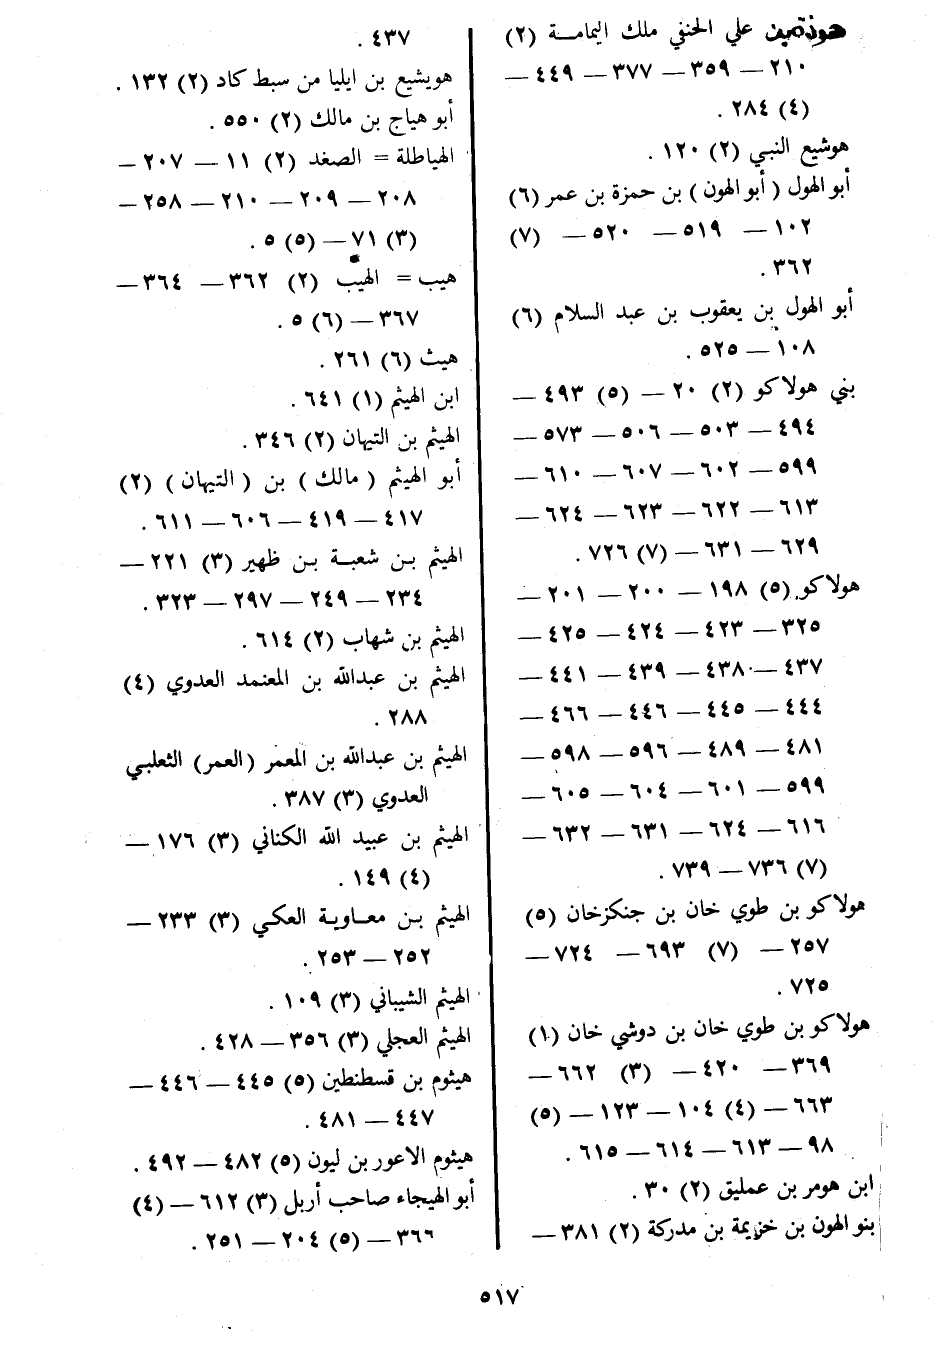 هوذة بن علي الحنفي ملك اليمامة (٢)
٢١٠ — ٣٥٩ — ٣٧٧ — ٤٤٩ —
(٤) ٢٨٤ .
هوشيع النبي (٢) ١٢٠ .
أبو الهول ( أبو الهون ) بن حمزة بن عمر (٦)
١٠٢ — ٥١٩ — ٥٢٠ — (٧)
٣٦٢ .
أبو الهول بن يعقوب بن عبد السلام (٦)
١٠٨ — ٥٢٥ .
بني هولاكو (٢) ٢٠ — (٥) ٤٩٣ —
٤٩٤ — ٥٠٣ — ٥٠٦ — ٥٧٣ —
٥٩٩ — ٦٠٢ — ٦٠٧ — ٦١٠ —
٦١٣ — ٦٢٢ — ٦٢٣ — ٦٢٤ —
٦٢٩ — ٦٣١ — (٧) ٧٢٦ .
هولاكو (٥) ١٩٨ — ٢٠٠ — ٢٠١ —
٣٢٥ — ٤٢٣ — ٤٢٤ — ٤٢٥ —
٤٣٧ — ٤٣٨ — ٤٣٩ — ٤٤١ —
٤٤٤ — ٤٤٥ — ٤٤٦ — ٤٦٦ —
٤٨١ — ٤٨٩ — ٥٩٦ — ٥٩٨ —
٥٩٩ — ٦٠١ — ٦٠٤ — ٦٠٥ —
٦١٦ — ٦٢٤ — ٦٣١ — ٦٣٢ —
(٧) ٧٣٦ — ٧٣٩ .
هولاكو بن طوي خان بن جنكزخان (٥)
٢٥٧ — (٧) ٦٩٣ — ٧٢٤ —
٧٢٥ .
هولاكو بن طوي خان بن دوشي خان (١)
٣٦٩ — ٤٢٠ — (٣) ٦٦٢ —
٦٦٣ — (٤) ١٠٤ — ١٢٣ — (٥)
٩٨ — ٦١٣ — ٦١٤ — ٦١٥ .
ابن هومر بن عمليق (٢) ٣٠ .
بنو الهون بن خزيمة بن مدركة (٢) ٣٨١ —
٤٣٧ .
هويشيع بن ايليا من سبط كاد (٢) ١٣٢ .
أبو هياج بن مالك (٢) ٥٥٠ .
الهياطلة = الصغد (٢) ١١ — ٢٠٧ —
٢٠٨ — ٢٠٩ — ٢١٠ — ٢٥٨ —
(٣) ٧١ — (٥) ٥ .
هيب = الهيب (٢) ٣٦٢ — ٣٦٤ —
٣٦٧ — (٦) ٥ .
هيث (٦) ٢٦١ .
ابن الهيثم (١) ٦٤١ .
الهيثم بن التيهان (٢) ٣٤٦ .
أبو الهيثم ( مالك ) بن ( التيهان ) (٢)
٤١٧ — ٤١٩ — ٦٠٦ — ٦١١ .
الهيثم بن شعبة بن ظهير (٣) ٢٢١ —
٢٣٤ — ٢٤٩ — ٢٩٧ — ٣٢٣ .
الهيثم بن شهاب (٢) ٦١٤ .
الهيثم بن عبدالله بن المعتمد العدوي (٤)
٢٨٨ .
الهيثم بن عبدالله بن المعمر (العمر) الثعلبي
العدوي (٣) ٣٨٧ .
الهيثم بن عبيد الله الكناني (٣) ١٧٦ —
(٤) ١٤٩ .
الهيثم بن معاوية العكي (٣) ٢٣٣ —
٢٥٢ — ٢٥٣ .
الهيثم الشيباني (٣) ١٠٩ .
الهيثم العجلي (٣) ٣٥٦ — ٤٢٨ .
هيثوم بن قسطنطين (٥) ٤٤٥ — ٤٤٦ —
٤٤٧ — ٤٨١ .
هيثوم الاعور بن ليون (٥) ٤٨٢ — ٤٩٢ .
أبو الهيجاء صاحب أربل (٣) ٦١٢ — (٤)
٣٦٦ — (٥) ٢٠٤ — ٢٥١ .
٥١٧